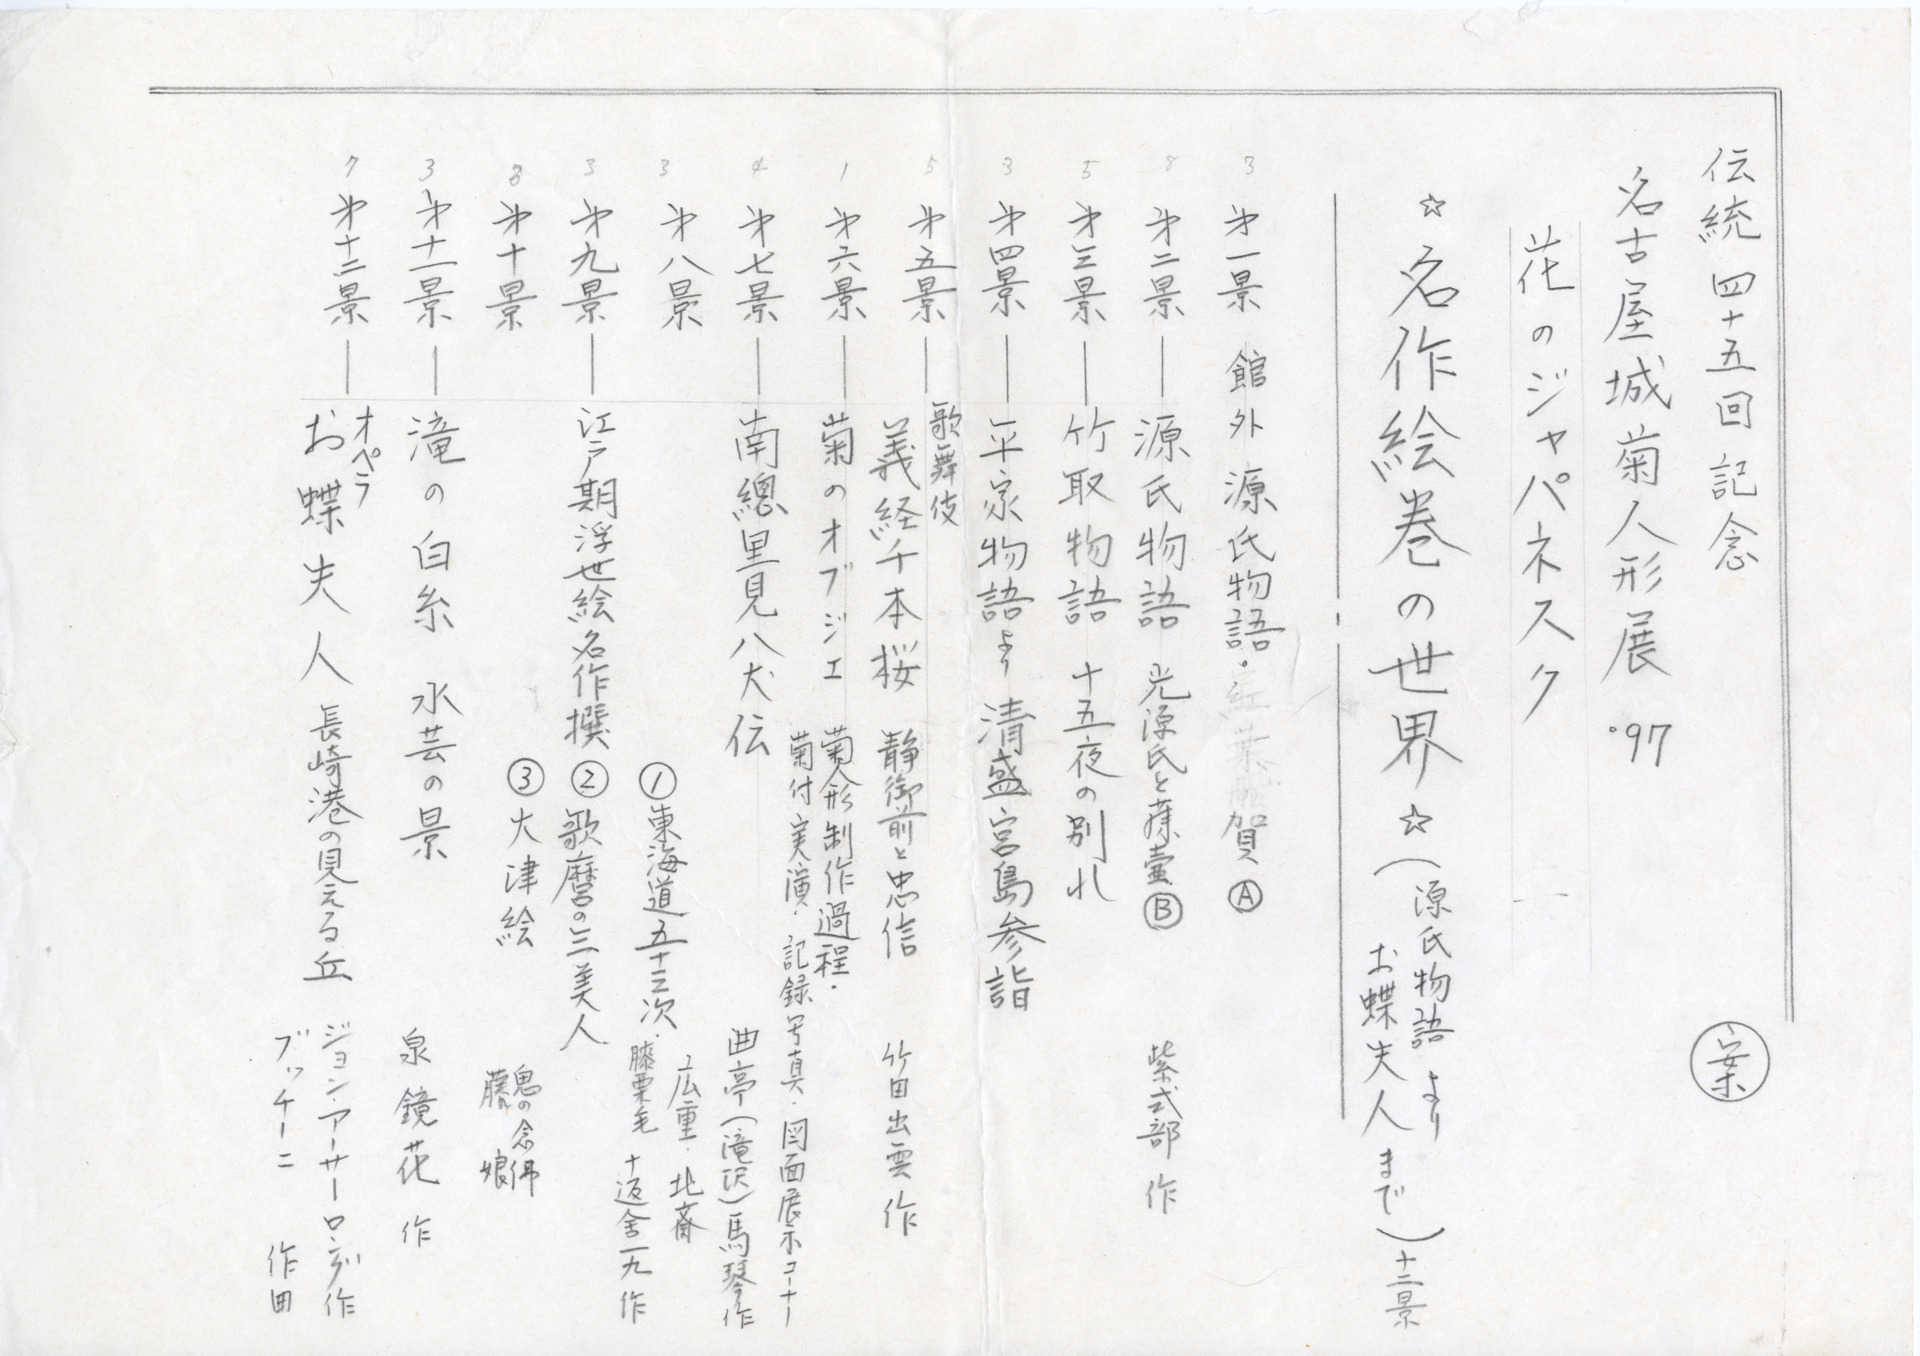 伝統四十五回記念
案
名古屋城菊人形展 '97
花のジャパネスク
☆名作絵巻の世界☆(源氏物語より
お蝶夫人まで)十二景
3 第一景 館外 源氏物語・紅葉賀 Ⓐ
8 第二景 ― 源氏物語 光源氏と藤壷 Ⓑ 紫式部 作
5 第三景 ― 竹取物語 十五夜の別れ
3 第四景 ― 平家物語より 清盛宮島参詣
5 第五景 ― 歌舞伎
義経千本桜 静御前と忠信 竹田出雲 作
1 第六景 ― 菊のオブジェ 菊人形制作過程・
菊付実演・記録写真・図面展示コーナー
4 第七景 ― 南總里見八犬伝 曲亭(滝沢)馬琴作
3 第八景 ① 東海道五十三次・広重・北斎
膝栗毛 十返舎一九 作
3 第九景 ― 江戸期浮世絵名作撰 ② 歌麿の三美人
3 第十景 ③ 大津絵 鬼の念佛
藤の娘
3 第十一景 ― 滝の白糸 水芸の景 泉鏡花 作
7 第十二景 ― オペラ
お蝶夫人 長崎港の見える丘 ジョン・アーサーロング作
プッチーニ 作曲